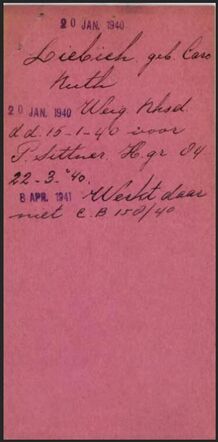 20 JAN. 1940
Liebich, geb. Caro
Ruth
20 JAN. 1940 Weig. Nhsd.
d.d. 15-1-40 voor
P. Sittner. H.gr 84
22-3-'40.
8 APR. 1941 Werkt daar
niet C.B 150/40